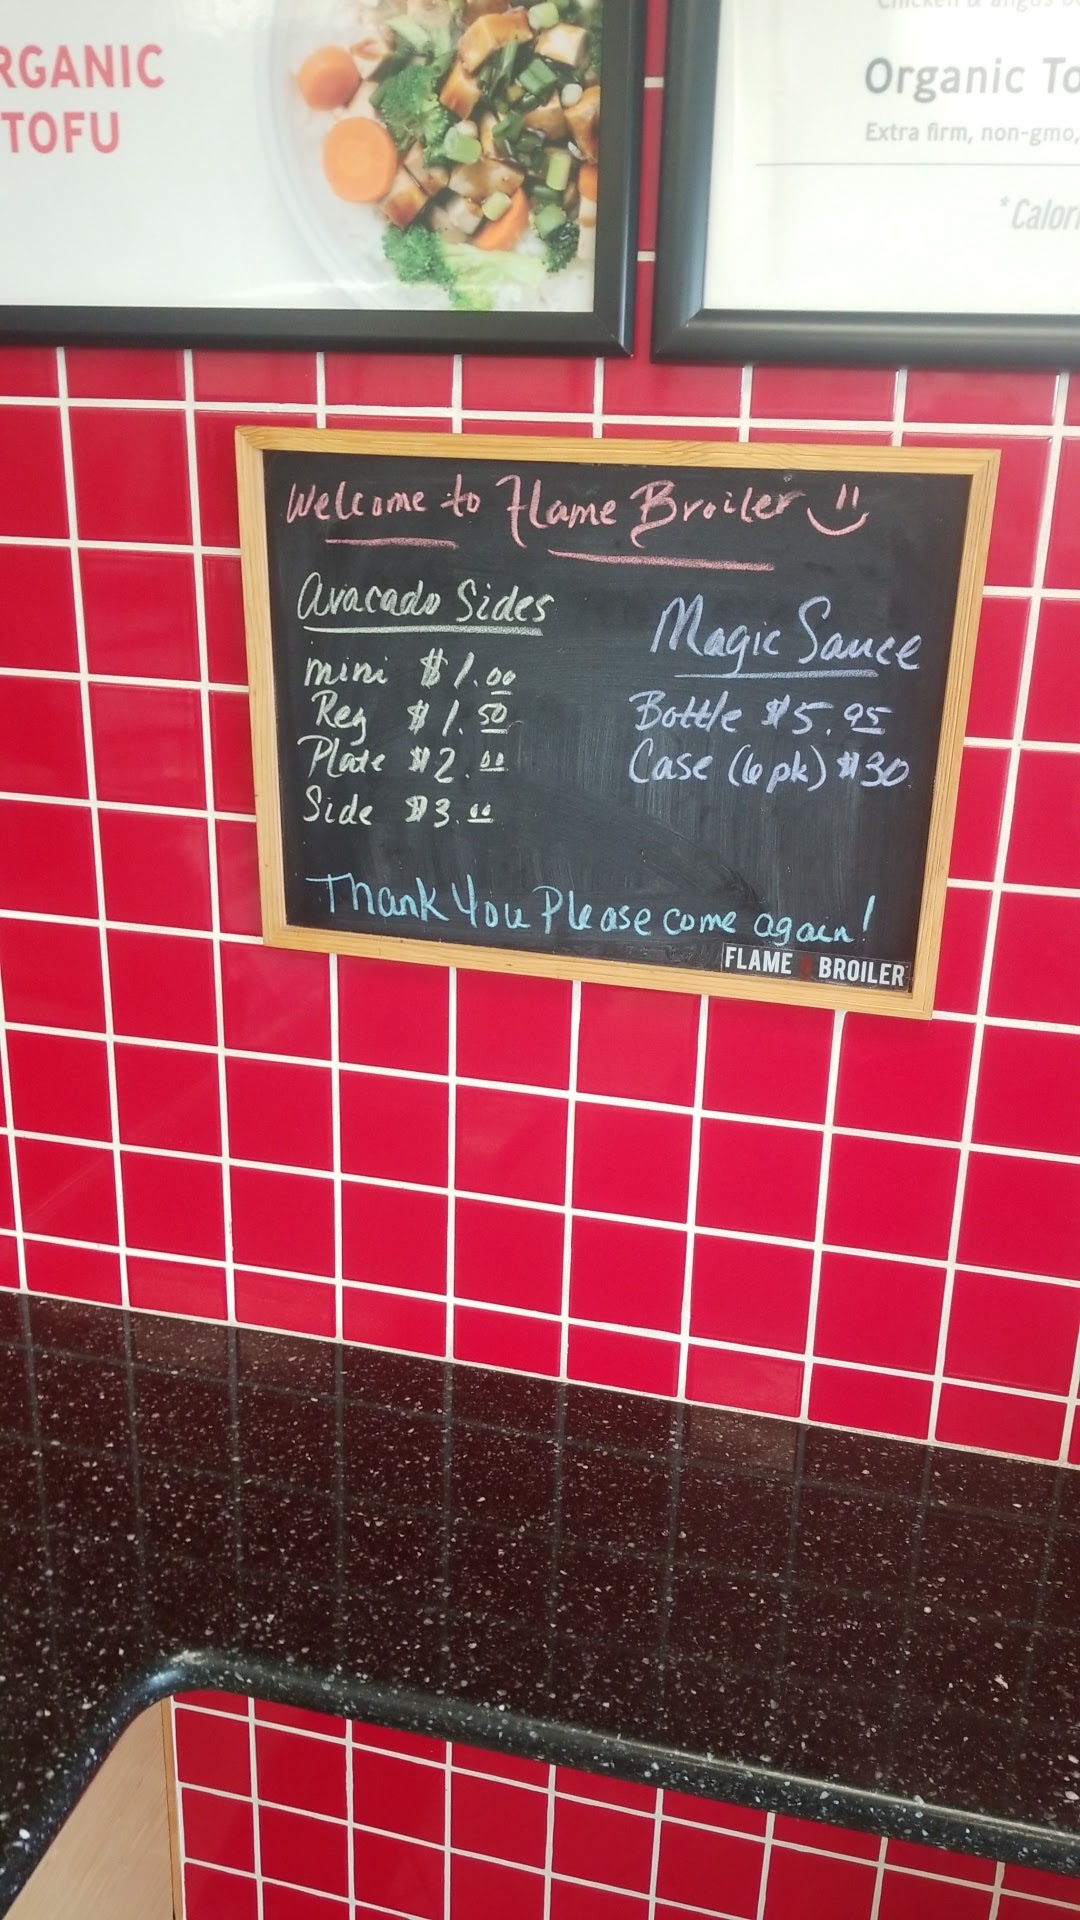 RGANIC
TOFU
Organic To
Extra firm, non-gmo,
*Calori
Welcome to Flame Broiler
Avacado Sides
mini $1.00
Reg $1.50
Plate $2.00
Side $3.00
Magic Sauce
Bottle $5.95
Case (6pk) $30
Thank You Please come again!
FLAME BROILER